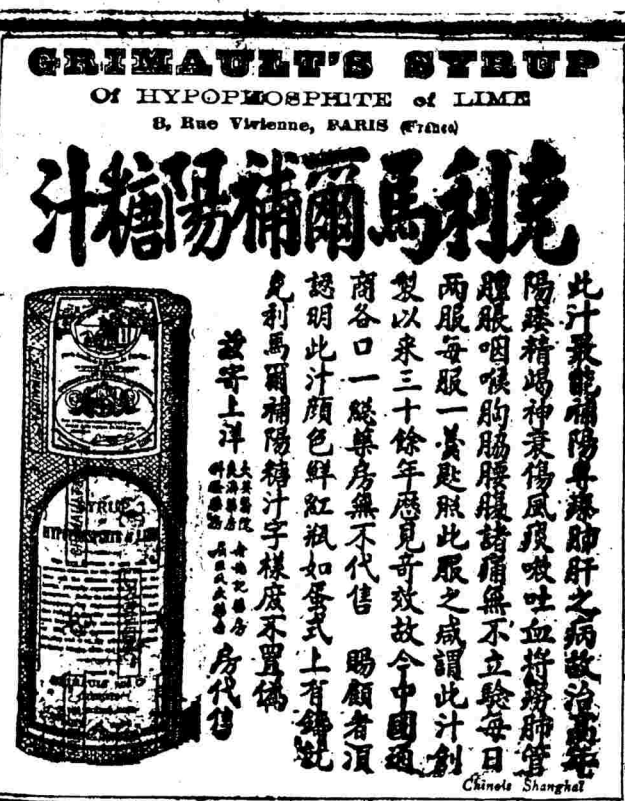 GRIMAULT'S SYRUP
Of HYPOPHOSPHITE of LIME
8, Rue Vivienne, PARIS (France)
克利馬爾補陽糖汁
此汁最能補陽專療肺肝之病故治
陽痿精竭神衰傷風痰嗽吐血將癆肺管
腫脹咽喉胸脇腰腹諸痛無不立驗每日
兩服每服一羹匙照此服之咸謂此汁創
製以來三十餘年歷見奇效故今中國通
商各口一綫藥房無不代售 賜顧者須
認明此汁顏色鮮紅瓶如蛋式上有鑄就
克利馬爾補陽糖汁字樣庶不買僞
寄上洋
房代售
SYRUP
of
HYPOPHOSPHITE of LIME
GRIMAULT
Chinois Shanghai